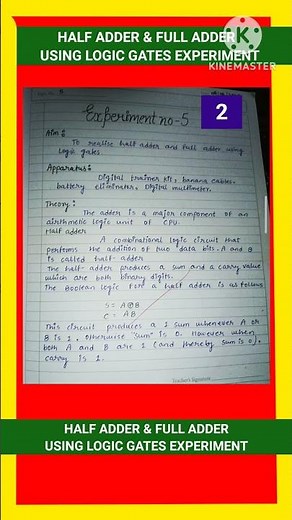 HALF ADDER & FULL ADDER
USING LOGIC GATES EXPERIMENT
K
KINEMASTER
2
Experiment no-5
Aim:
To realise half adder and full adder using
logic gates.
Apparatus:
Digital trainer kit, banana cables,
battery eliminator, digital multimeter.
Theory:
The adder is a major component of an
airthmetic logic unit of CPU.
Half adder
A combinational logic circuit that
performs the addition of two data bits. A and B
is called half-adder
The half-adder produces a sum and a carry value
which are both binary digits.
The Boolean logic for a half adder is as follows
S = A⊕B
C = AB
This circuit produces a 1 sum whenever A or
B is 1. Otherwise "sum" is 0. However when
both A and B are 1 (and thereby sum is 0),
carry is 1.
Teacher's Signature
HALF ADDER & FULL ADDER
USING LOGIC GATES EXPERIMENT